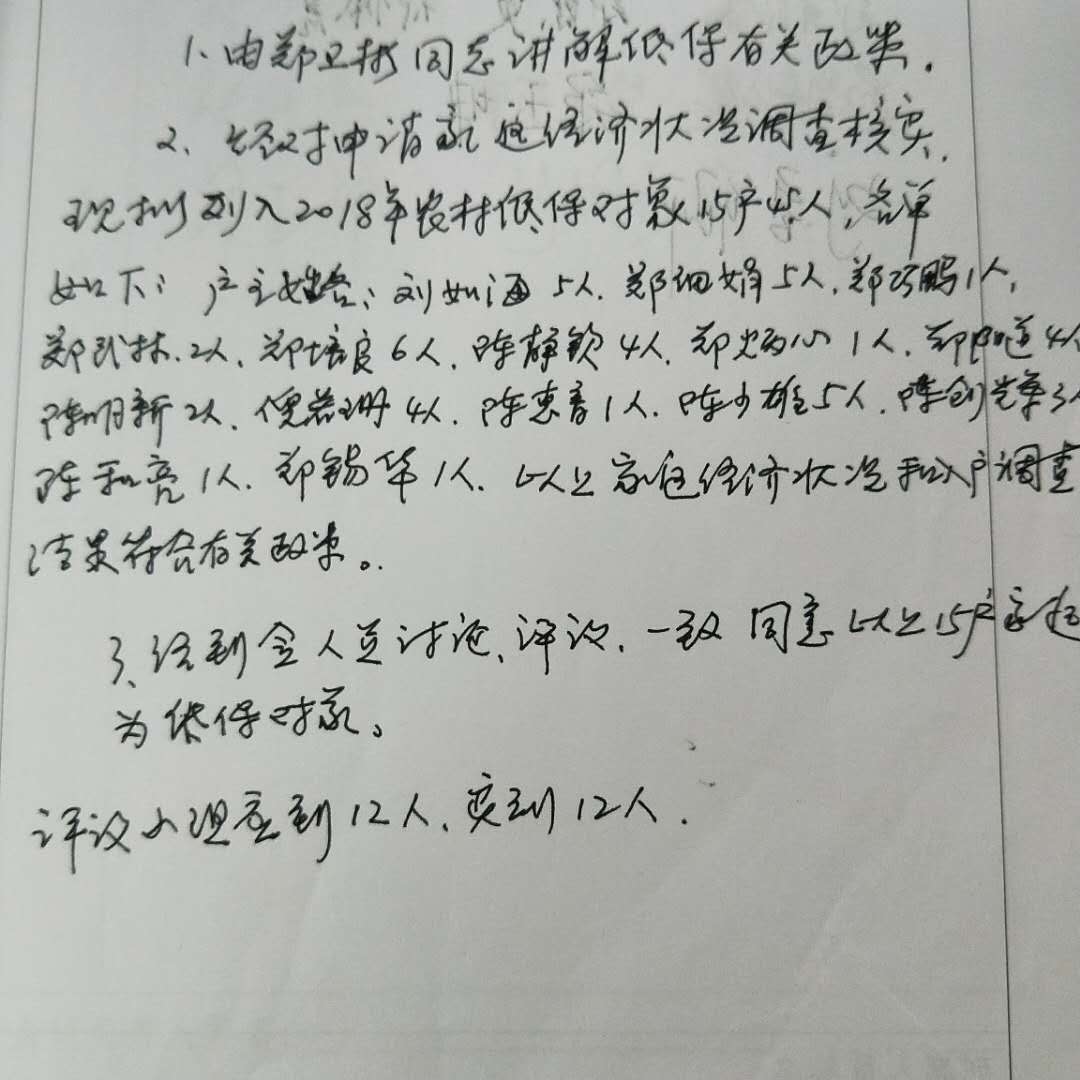 1、由郑卫彬同志讲解低保有关政策.
2、经对申请家庭经济状况调查核实.
现拟列入2018年农村低保对象15户45人,名单
如下: 户主姓名: 刘如通 5人. 郑细娟5人, 郑巧鹏1人,
郑武林.2人. 郑培良6人. 陈静歆4人. 郑炳心1人. 郑 道4人
陈明新2人. 4人. 陈惠音1人. 陈少雄5人. 陈创 3人
陈和亮1人. 郑锡华1人. 以上家庭经济状况和入户调查
结果符合有关政策。
3、经到会人员讨论、评议,一致同意以上15户家庭
为低保对象。
评议小组应到12人、实到12人.